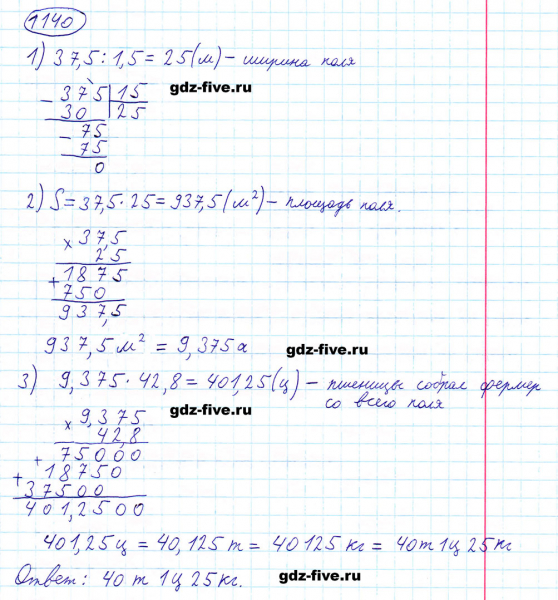 1140
1) 37,5 : 1,5 = 25 (м) – ширина поля
gdz-five.ru
– 375 | 15
30 | 25
– 75
75
0
2) S = 37,5 · 25 = 937,5 (м²) – площадь поля.
× 37,5
25
+ 1875
750
937,5
937,5 м² = 9,375 а
gdz-five.ru
3) 9,375 · 42,8 = 401,25 (ц) – пшеницы собрал фермер
со всего поля
gdz-five.ru
× 9,375
42,8
+ 75000
+ 18750
37500
401,2500
401,25 ц = 40,125 т = 40125 кг = 40 т 1 ц 25 кг
Ответ: 40 т 1 ц 25 кг.
gdz-five.ru